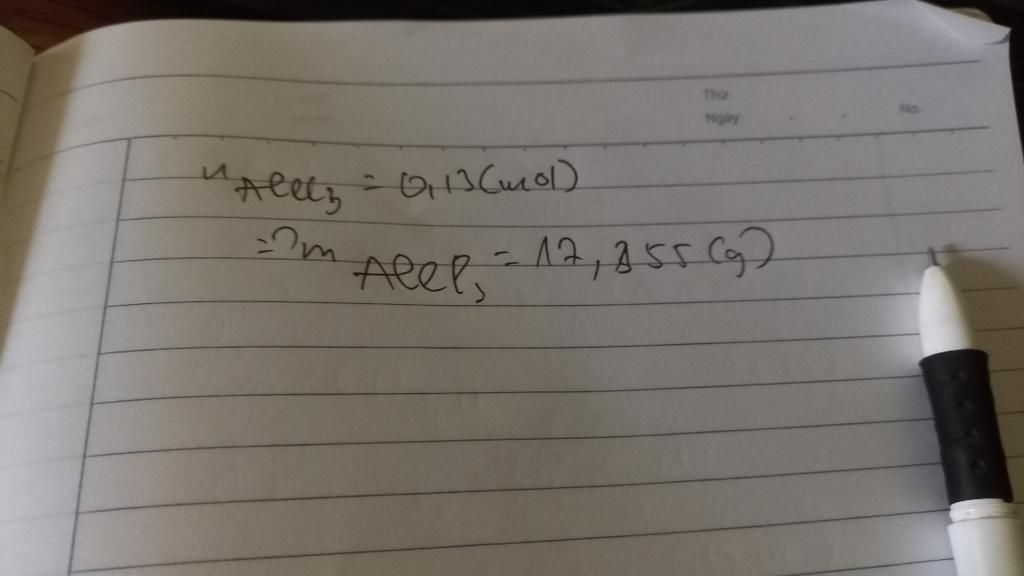 Thứ
Ngày No.
n AlCl3 = 0,13 (mol)
=> m AlCl3 = 17,355 (g)